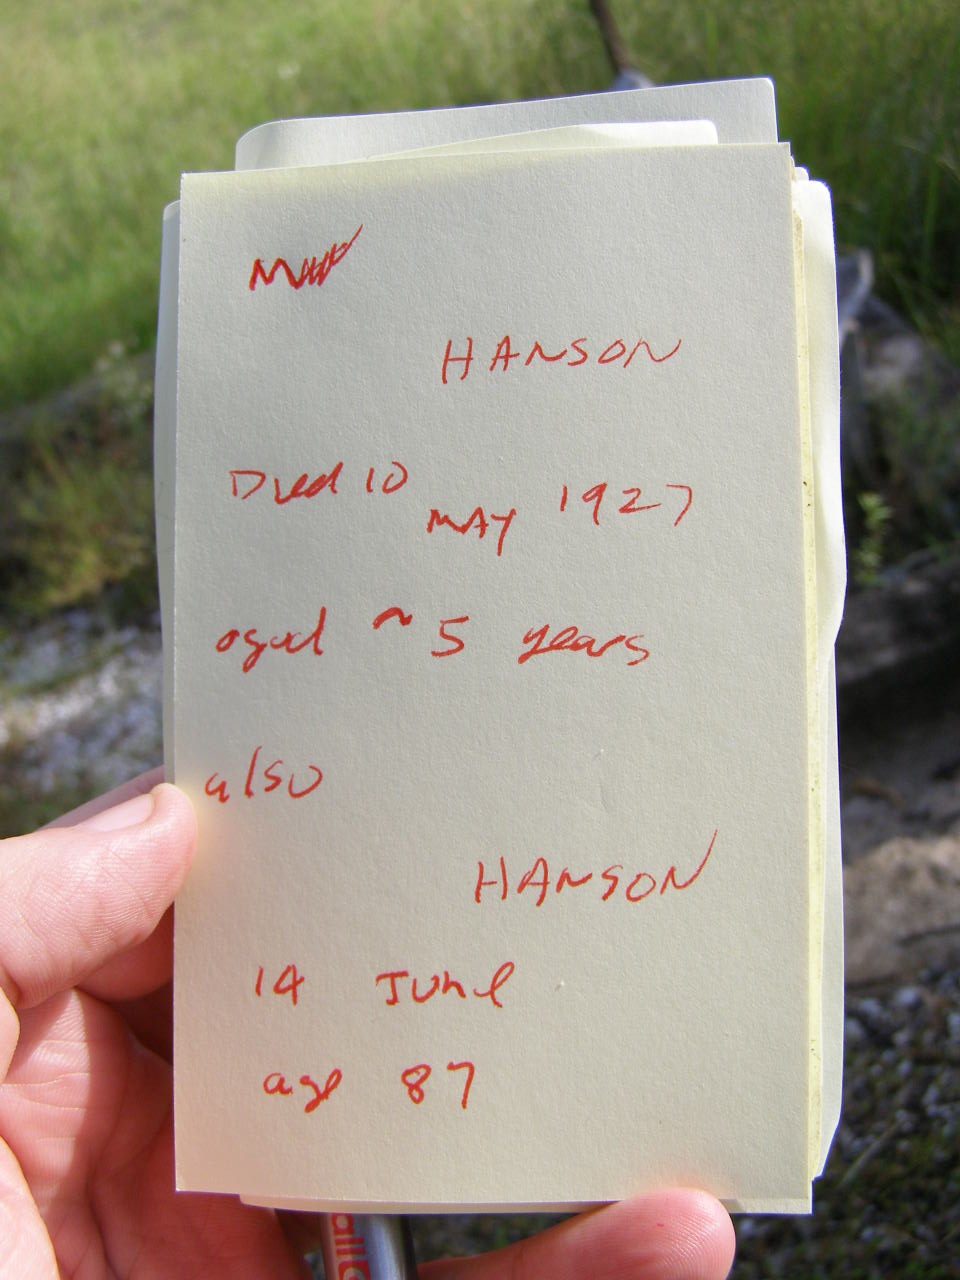 HANSON
Died 10 MAY 1927
aged ~ 5 years
also
HANSON
14 June
age 87